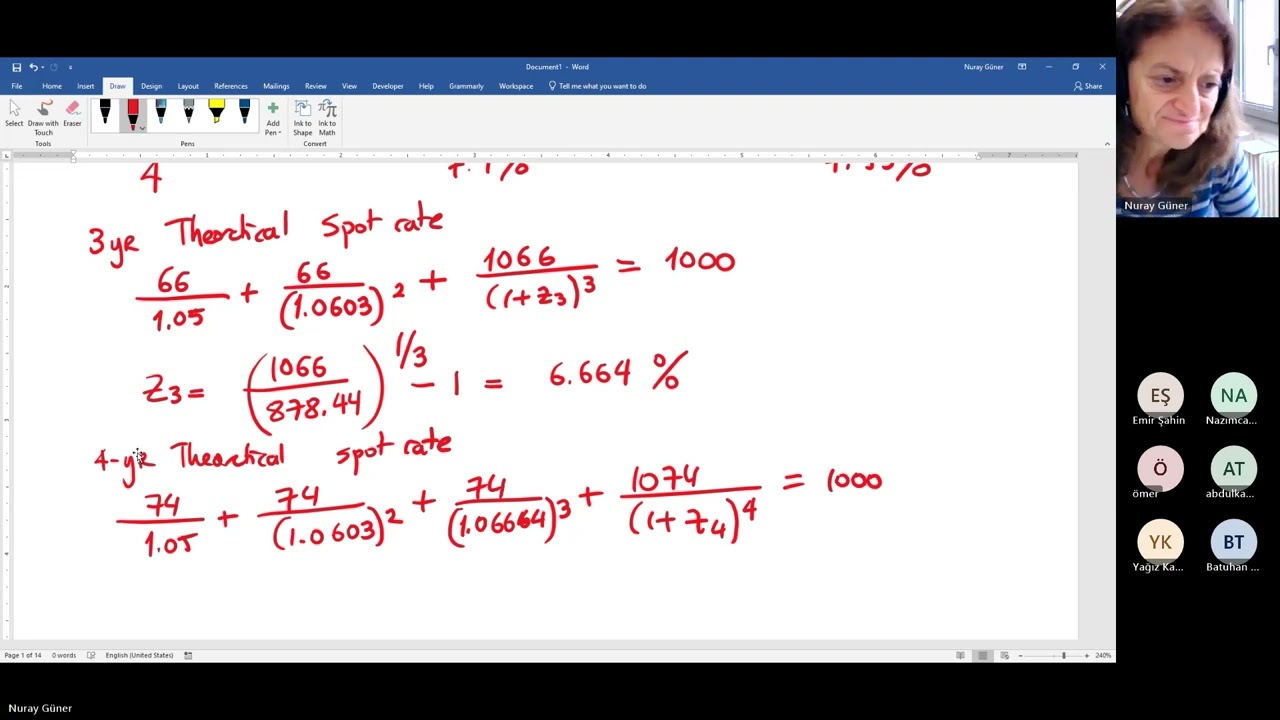 Document1 - Word
Nuray Güner
File Home Insert Draw Design Layout References Mailings Review View Developer Help Grammarly Workspace Tell me what you want to do
Share
Select Draw with Touch Eraser Add Pen Ink to Shape Ink to Math
Tools Pens Convert
4
3 yr Theoretical Spot rate
66/1.05 + 66/(1.0603)^2 + 1066/(1+z3)^3 = 1000
Z3 = (1066/878.44)^1/3 - 1 = 6.664 %
4-yr Theoretical spot rate
74/1.05 + 74/(1.0603)^2 + 74/(1.06664)^3 + 1074/(1+z4)^4 = 1000
Page 1 of 14 0 words English (United States) 240%
Nuray Güner
EŞ NA
Emir Şahin Nazımca...
Ö AT
ömer abdulka...
YK BT
Yağız Ka... Batuhan ...
Nuray Güner